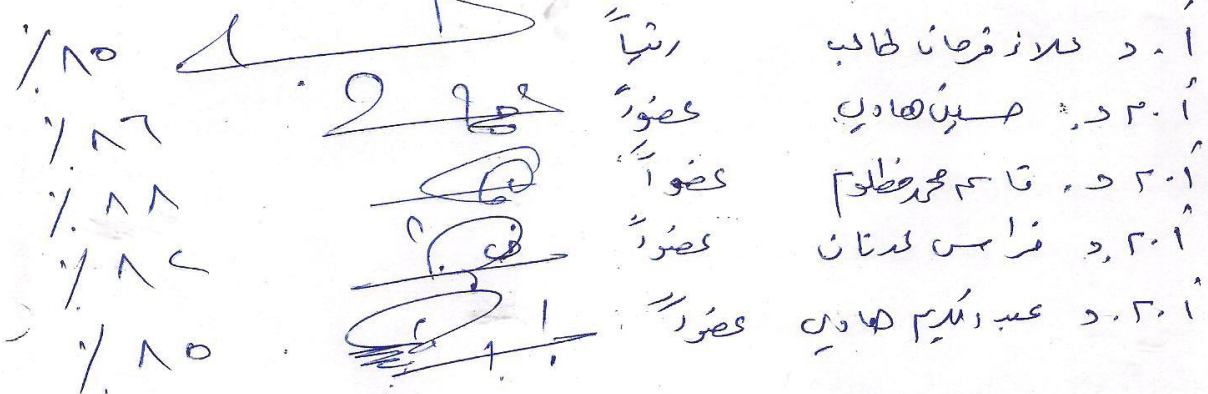 أ. د علاء فرحان طالب رئيساً ٨٥٪
أ.م.د. حسين هادي عضواً ٨٦٪
أ.م.د. قاسم محمد مظلوم عضواً ٨٨٪
أ.م.د فراس عدنان عضواً ٨٢٪
أ.م.د عبد الكريم هادي عضواً ٨٥٪